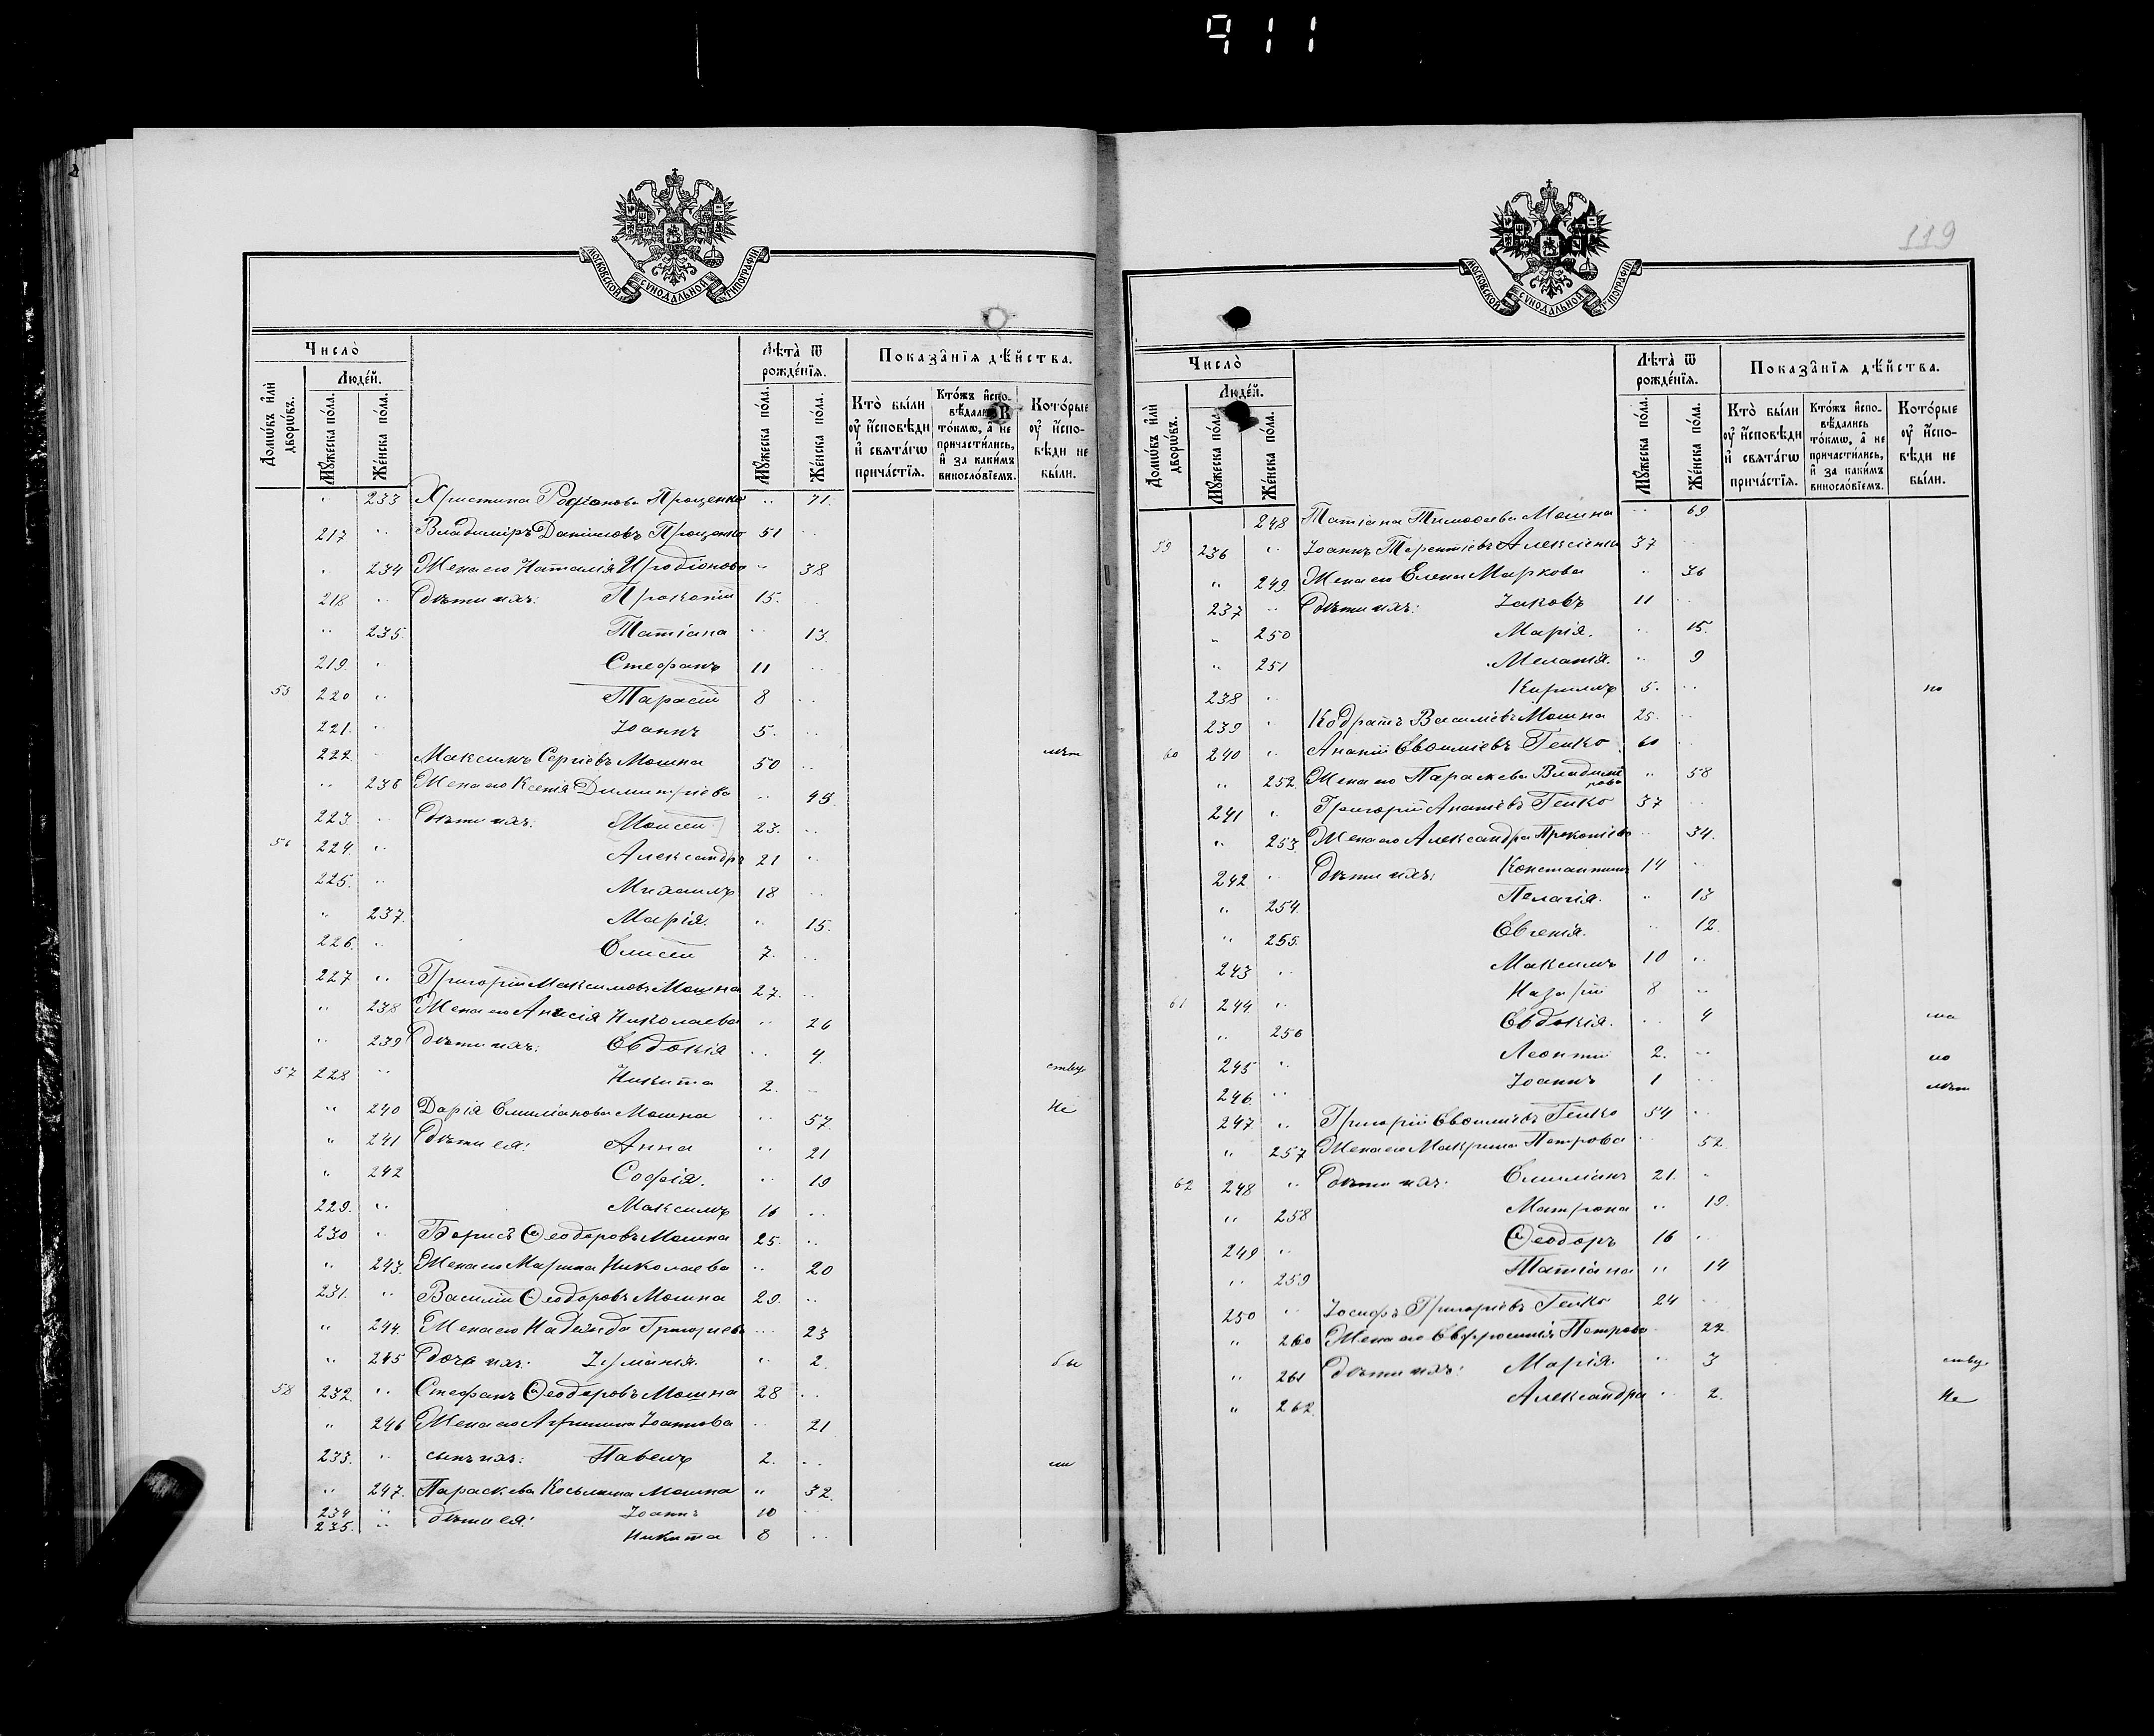 911
МОСКОВСКОЙ СУНОДАЛЬНОЙ ТИПОГРАФІИ
Число̀
Людéй.
Домѡ́въ и҆лѝ дворѡ́въ.
Мꙋ́жеска пóла.
Жéнска пóла.
Лѣта̀ ѿ рождéнїѧ.
Мꙋ́жеска пóла.
Жéнска пóла.
Показа̑нїѧ дѣ́йства.
Кто̀ бы́ли
ᲂу҆ и҆́сповѣди
и҆ свѧта́гѡ
прича́стїѧ.
Кто́жъ и҆спо-
вѣ́дались
то́кмѡ, а҆ не
причасти́лись,
и҆ за каки́мъ
винослóвїемъ.
Кото́рые
ᲂу҆ и҆́спо-
вѣди не
бы́ли.
" 233 Христина Родіонова Проценко " 71.
217 " Владиміръ Даніиловъ Проценко 51 "
" 234 Жена его Наталія Иродіонова " 38
218 " Дѣти ихъ: Прокопій 15. "
" 235. Татіана " 13.
219. " Стефанъ 11 "
55 220 " Тарасій 8 "
221. " Іоаннъ 5. "
222. " Максимъ Сергіевъ Мошна 50 " лѣт
" 236 Жена его Ксенія Димитріева " 45.
223. " Дѣти ихъ: Моисей 23. "
56 224. " Александръ 21 "
225. " Михаилъ 18 "
" 237. Марія. " 15.
226. " Елисей 7. "
227 " Григорій Максимовъ Мошна 27. "
" 238 Жена его Анисія Николаева " 26
" 239 Дѣти ихъ: Евдокія " 4.
57 228 " Никита 2. " ству
" 240 Дарія Емиліанова Мошна " 57. Не
" 241 Дѣти ея: Анна " 21
" 242 Софія. " 19
229. " Максимъ 16 "
230 " Борисъ Ѳеодоровъ Мошна 25. "
" 243. Жена его Марина Николаева " 20
231. " Василій Ѳеодоровъ Мошна 29. "
" 244. Жена его Надежда Григориева " 23
" 245 Дочь ихъ: " 2. бы
58 232. " Стефанъ Ѳеодоровъ Мошна 28 "
" 246 Жена его Іоаннова " 21
233. " сынъ ихъ: Павелъ 2. " ли
" 247. Параскева Косьмина Мошна " 32.
234 " дѣти ея: Іоаннъ 10
235. " Никита 8 "
119
МОСКОВСКОЙ СУНОДАЛЬНОЙ ТИПОГРАФІИ
Число̀
Людéй.
Домѡ́въ и҆лѝ дворѡ́въ.
Мꙋ́жеска пóла.
Жéнска пóла.
Лѣта̀ ѿ рождéнїѧ.
Мꙋ́жеска пóла.
Жéнска пóла.
Показа̑нїѧ дѣ́йства.
Кто̀ бы́ли
ᲂу҆ и҆́сповѣди
и҆ свѧта́гѡ
прича́стїѧ.
Кто́жъ и҆спо-
вѣ́дались
то́кмѡ, а҆ не
причасти́лись,
и҆ за каки́мъ
винослóвїемъ.
Кото́рые
ᲂу҆ и҆́спо-
вѣди не
бы́ли.
248 Татіана Тимоѳеева Мошна " 69
59 236 " Іоаннъ Терентіевъ Алексіенко 37 "
" 249. Жена его Елена Маркова " 36
237 " Дѣти ихъ: Іаковъ 11 "
" 250 Марія. " 15.
" 251 Меланія. " 9
238 " Кириллъ 5. " по
239 " Кодратъ Василіевъ Мошна 25. "
60 240 " Ананій Евѳиміевъ Гепко 60 "
" 252. Жена его Параскева Владимірова " 58
241 " Григорій Ананіевъ Гепко 37 "
" 253. Жена его Александра Прокопіева " 34.
242 " Дѣти ихъ: Константинъ 14 "
" 254. Пелагія. " 13
" 255. Евгенія. " 12.
243 " Максимъ 10 "
61 244 " Назарій 8 "
" 256 Евдокія. " 4 ма
245 " Леонтій 2. " ло
246. " Іоаннъ 1 " лѣт
247 " Григорій Евѳиміевъ Гепко 54 "
" 257 Жена его Макрина Петрова " 52.
62 248 " Дѣти ихъ: Емиліанъ 21. "
" 258 Матрона " 19.
249 " Ѳеодоръ 16 "
" 259 Татіана " 14
250 " Іосифъ Григоріевъ Гепко 24 "
" 260 Жена его Евфросинія Петрова " 22
" 261 Дѣти ихъ: Марія " 3 ству
" 262. Александра " 2. Не